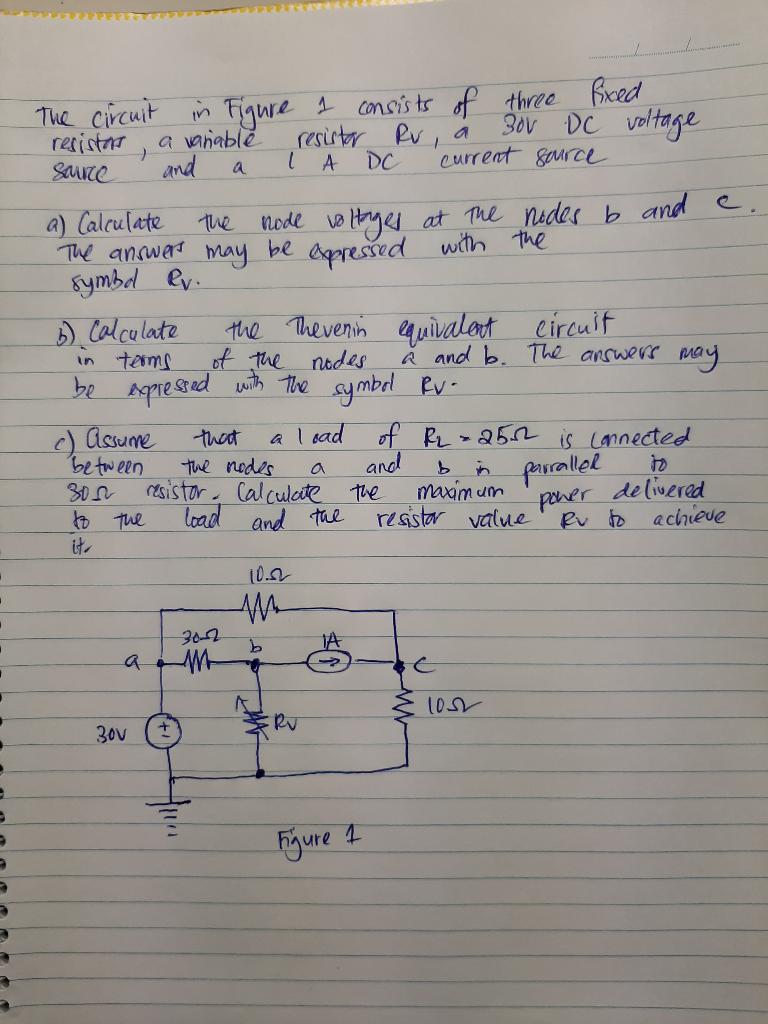 The circuit in Figure 1 consists of three fixed
resistors, a variable resistor Rv, a 30V DC voltage
source and a 1 A DC current source
a) Calculate the node voltages at the nodes b and c.
The answers may be expressed with the
symbol Rv.
b) Calculate the Thevenin equivalent circuit
in terms of the nodes a and b. The answers may
be expressed with the symbol Rv.
c) Assume that a load of RL = 25Ω is connected
between the nodes a and b in parrallel to
30Ω resistor. Calculate the maximum power delivered
to the load and the resistor value Rv to achieve
it.
10Ω
30Ω
b
1A
a
c
10Ω
30V
Rv
Figure 1